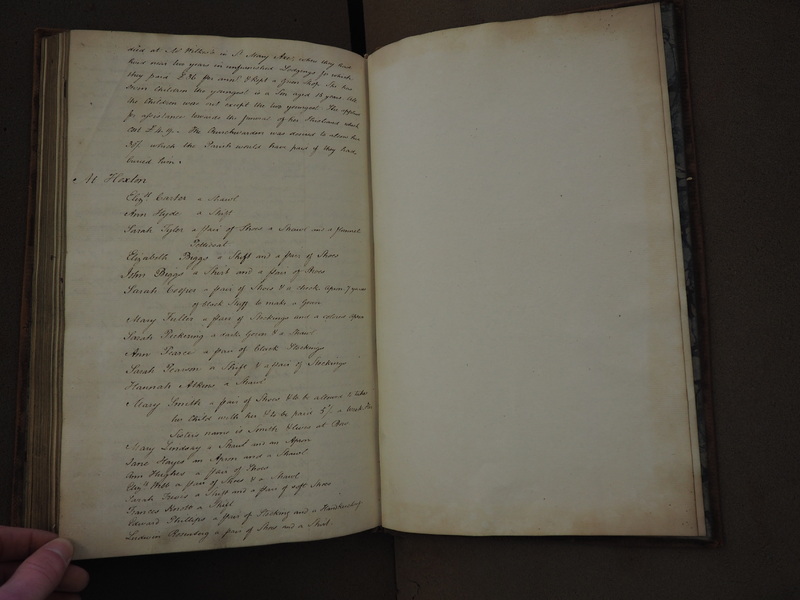 died at Mr Wilkes's in St Mary Axe, where they had
lived near two years in unfurnished Lodgings for which
they paid £36 per ann. & kept a Green Shop. She has
seven Children the youngest is a Son aged 13 years. All
the Children are out except the two youngest. She applies
for assistance towards the funeral of her Husband which
cost £4. The Churchwarden was desired to allow her
30/- which the Parish would have paid if they had
buried him.
At Hoxton
Elizth Carter a Shawl
Ann Hyde a Shift
Sarah Tyler a pair of Shoes a Shawl and a flannel
Petticoat
Elizabeth Biggs a Shift and a pair of Shoes
John Biggs a Shirt and a pair of Shoes
Sarah Cooper a pair of Shoes & a check Apron 7 yards
of black Stuff to make a Gown
Mary Fuller a pair of Stockings and a colored Apron
Sarah Pickering a dark Gown & a Shawl
Ann Pearce a pair of black Stockings
Sarah Pearson a Shift & a pair of Stockings
Hannah Atkins a Shawl
Mary Smith a pair of Shoes & to be allowed to take
her Child with her & to be paid 5/- a Week
Sisters name is Smith & lives at Bow
Mary Lindsay a Shawl and an Apron
Jane Hayes an Apron and a Shawl
Ann Hughes a pair of Shoes
Elizth a pair of Shoes & a Shawl
Sarah a Shift and a pair of soft Shoes
Frances a Shift
Edward Phillips a pair of Stocking and a Handkerchief
a pair of Shoes and a Shirt